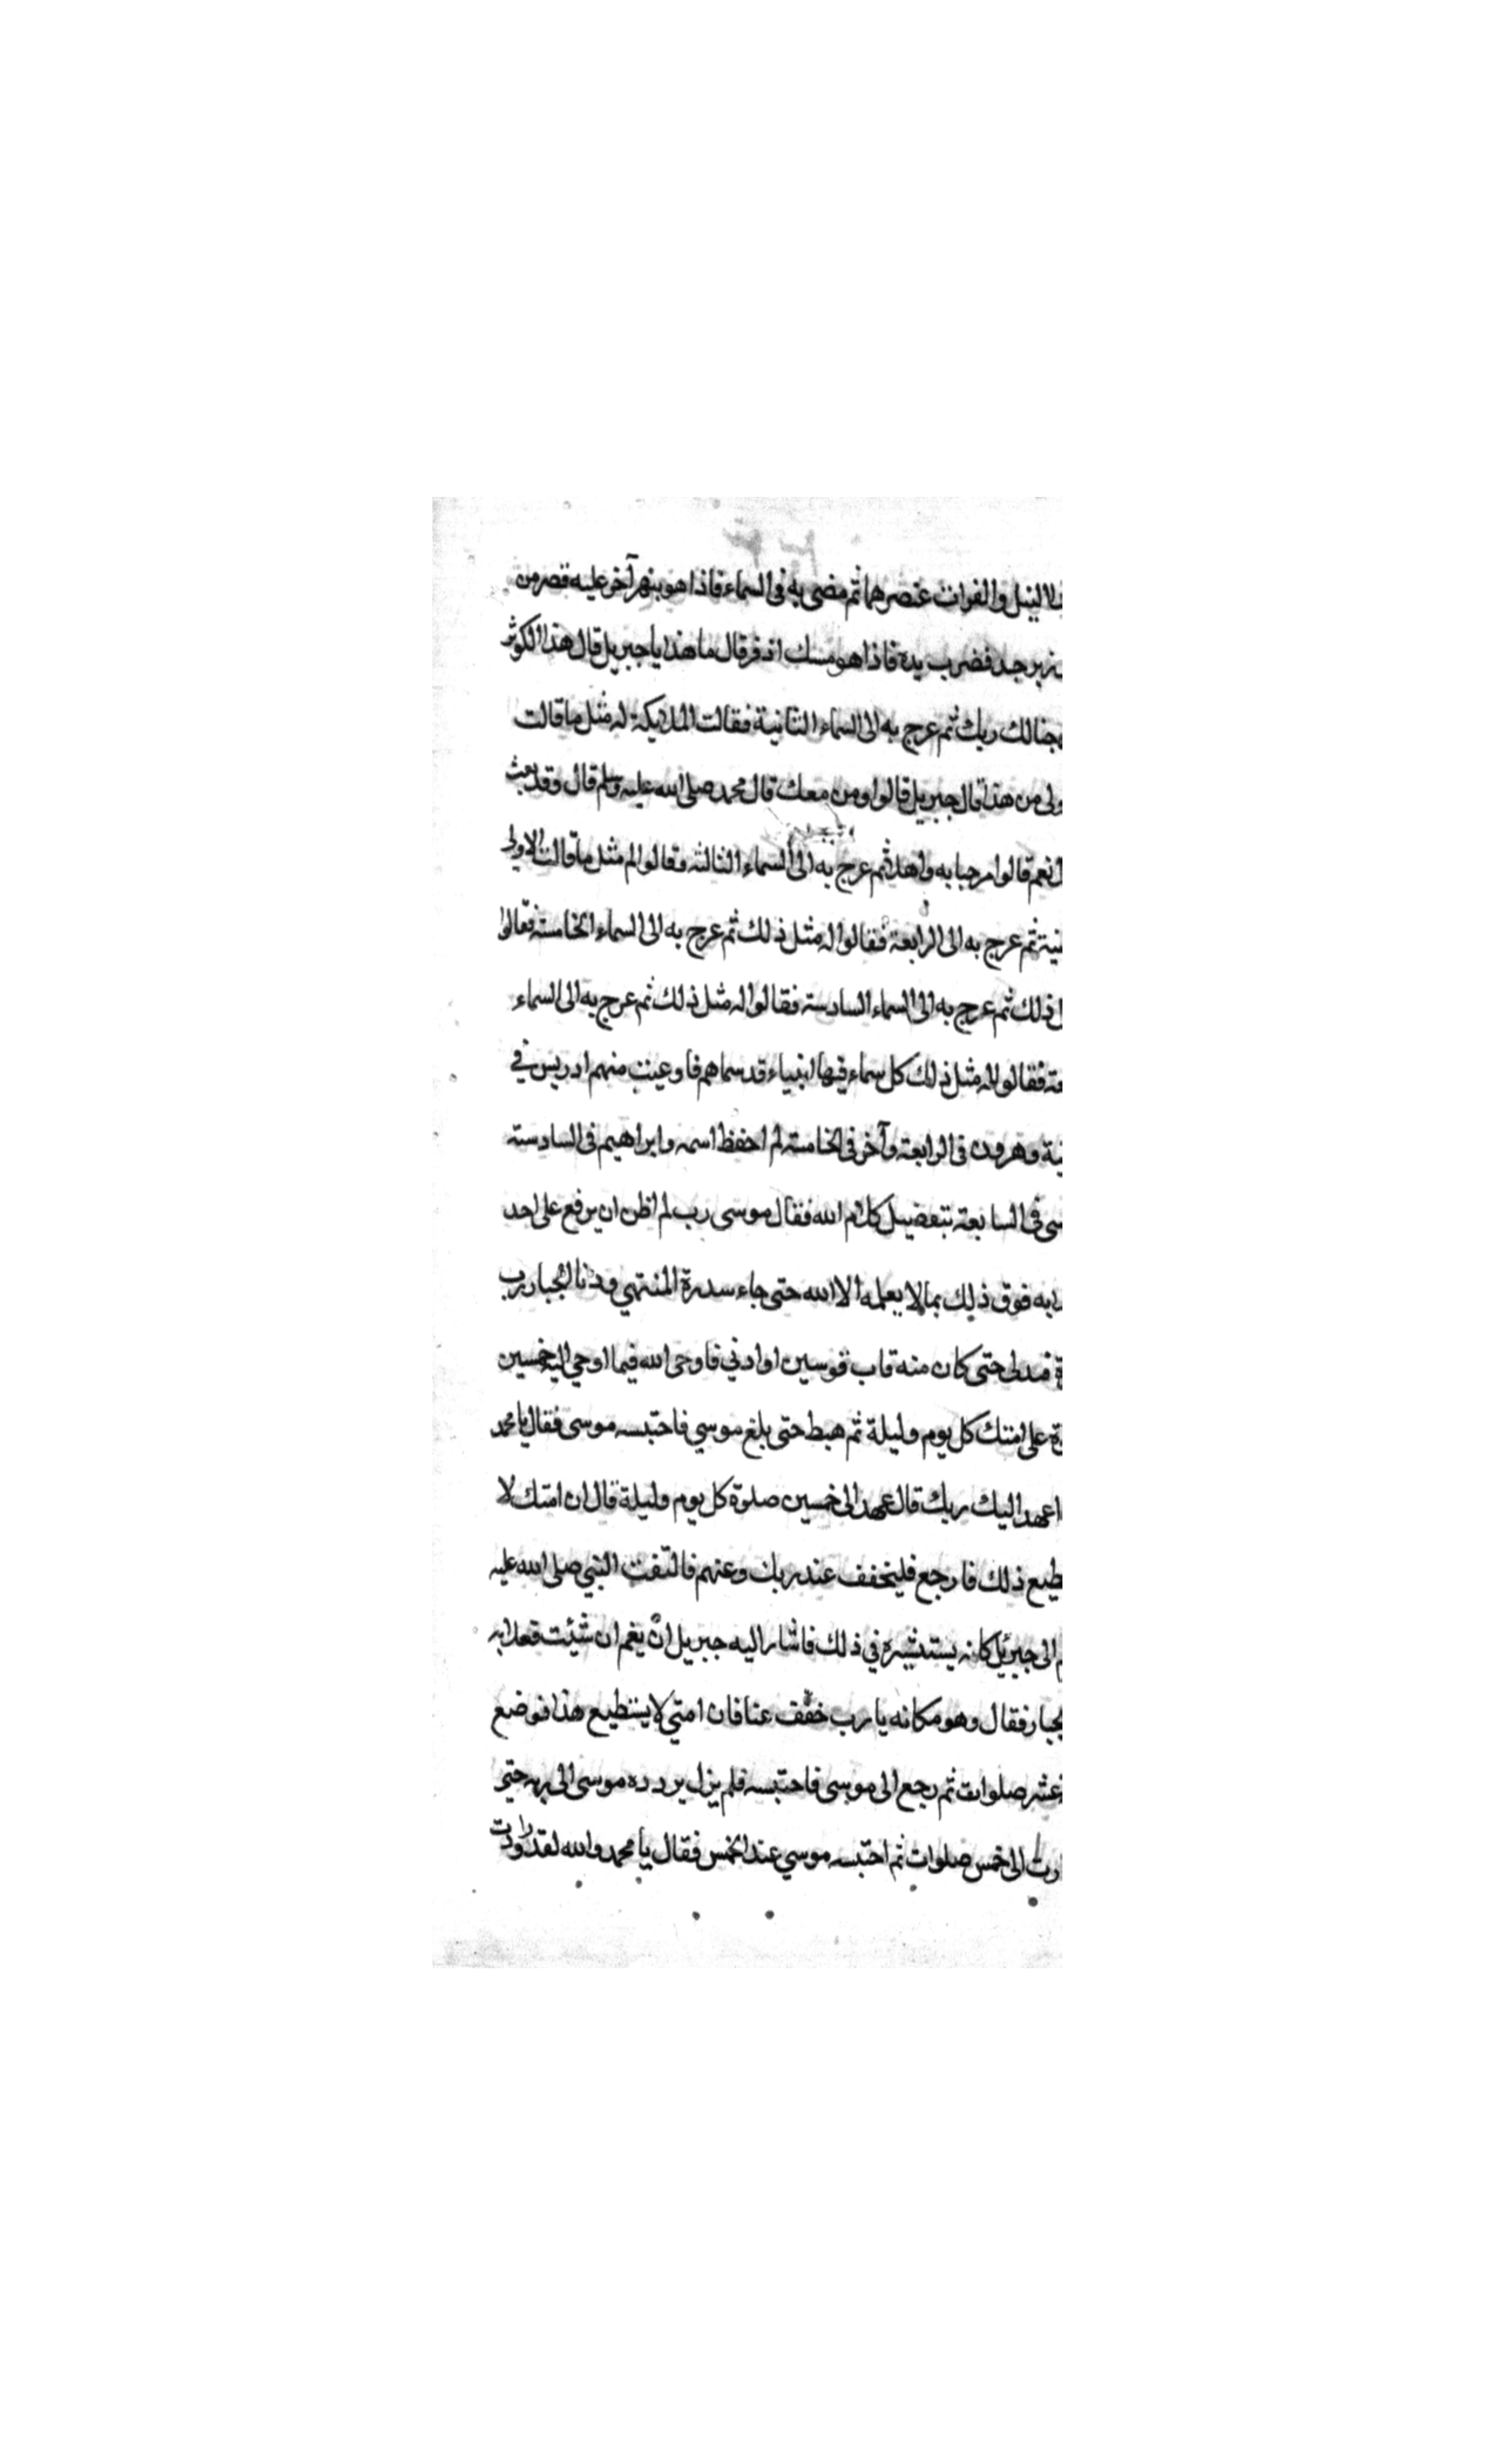 النيل والفرات عنصرهما ثم مضى به فى السماء فاذا هو بنهر آخر عليه قصر من
زبرجد فضرب يده فاذا هو مسك اذفر قال ما هذا يا جبريل قال هذا الكوثر
خبا لك ربك ثم عرج به الى السماء الثانية فقالت الملائكة له مثل ما قالت
ولى من هذا قال جبريل قالوا ومن معك قال محمد صلى الله عليه وسلم قال وقد بعث
نعم قالوا مرحبا به واهلا ثم عرج به الى السماء الثالثة وقالوا له مثل ما قالت الاولى
نية ثم عرج به الى الرابعة فقالوا له مثل ذلك ثم عرج به الى السماء الخامسة فقالوا
ل ذلك ثم عرج به الى السماء السادسة فقالوا له مثل ذلك ثم عرج به الى السماء
عة فقالوا له مثل ذلك كل سماء فيها انبياء قد سماهم فاوعيت منهم ادريس في
نية وهرون فى الرابعة وآخر فى الخامسة لم احفظ اسمه وابراهيم فى السادسة
سى فى السابعة بتفضيل كلام الله فقال موسى رب لم اظن ان يرفع على احد
به فوق ذلك بما لا يعلمه الا الله حتى جاء سدرة المنتهي ودنا الجبار رب
ة فتدلى حتى كان منه قاب قوسين او ادني فاوحى الله فيما اوحي اليه خمسين
ة على امتك كل يوم وليلة ثم هبط حتى بلغ موسي فاحتبسه موسى فقال يا محمد
ا عهد اليك ربك قال عهد الى خمسين صلوة كل يوم وليلة قال ان امتك لا
طيع ذلك فارجع فليخفف عند ربك وعنهم فالتفت النبي صلى الله عليه
م الى جبريل كانه يستشيره في ذلك فاشار اليه جبريل ان نعم ان شئت فعلا به
لجبار فقال وهو مكانه يا رب خفف عنا فان امتي لا يستطيع هذا فوضع
عشر صلوات ثم رجع الى موسى فاحتبسه فلم يزل يردده موسى الى ربه حتي
رت الى خمس صلوات ثم احتبسه موسي عند الخمس فقال يا محمد والله لقد راودت